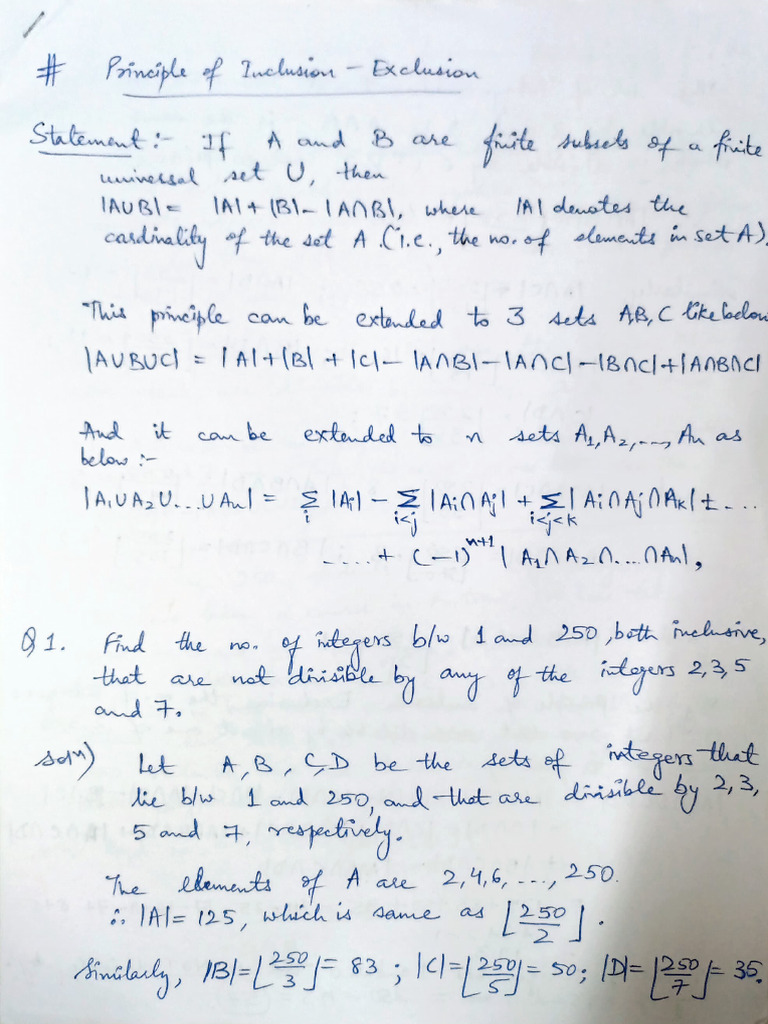 # Principle of Inclusion - Exclusion
Statement :- If A and B are finite subsets of a finite
universal set U, then
|A∪B| = |A| + |B| - |A∩B|, where |A| denotes the
cardinality of the set A. (i.e., the no. of elements in set A).
This principle can be extended to 3 sets A,B,C like below
|A∪B∪C| = |A|+|B| + |C| - |A∩B| - |A∩C| - |B∩C| + |A∩B∩C|
And it can be extended to n sets A₁, A₂, ---, An as
below :-
|A₁∪A₂∪...∪An| = Σ |Ai| - Σ |Ai∩Aj| + Σ | Ai∩Aj∩Ak| ± ....
i i<j i<j<k
.....+ (-1)ⁿ⁺¹ | A₁∩A₂∩....∩An|,
Q1. Find the no. of integers b/w 1 and 250, both inclusive,
that are not divisible by any of the integers 2,3,5
and 7.
Solⁿ) Let A, B, C, D be the sets of integers that
lie b/w 1 and 250, and that are divisible by 2, 3,
5 and 7, respectively.
The elements of A are 2,4,6, ..., 250.
∴ |A| = 125, which is same as ⌊250/2⌋.
Similarly, |B| = ⌊250/3⌋ = 83 ; |C| = ⌊250/5⌋ = 50; |D| = ⌊250/7⌋ = 35.